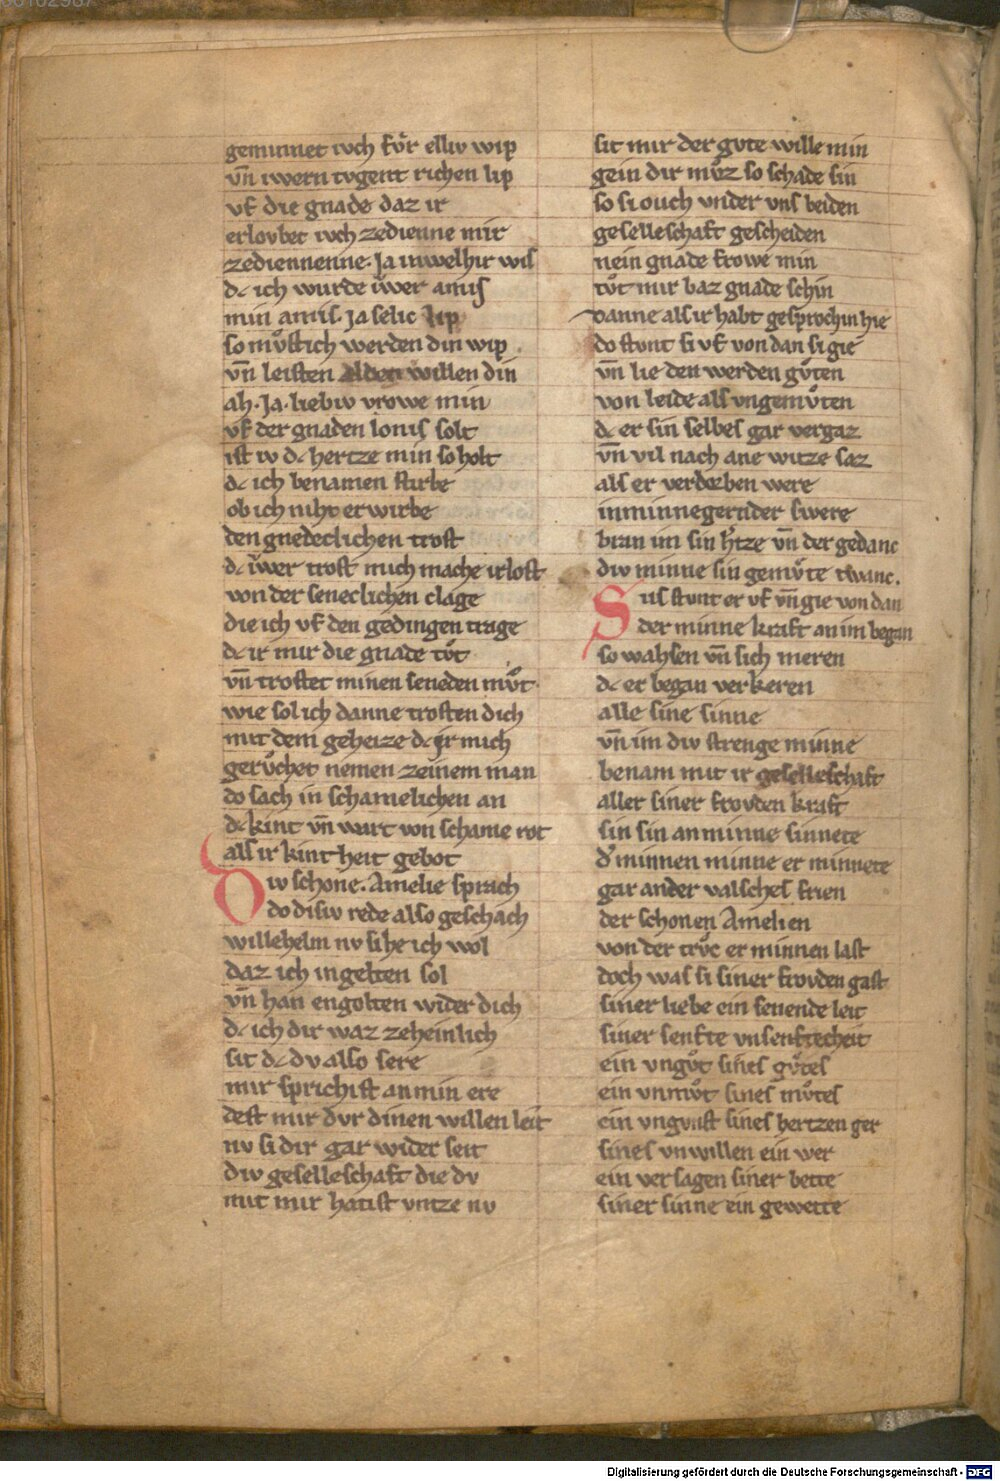 geminnet iuch fv́r elliv wip
vn̄ iwern tvgent richen lip
vf die gnade daz ir
erlovbet iuch zedienne mir
zediennenne. Ja inwelhir wis
dc ich wurde iwer amis
min amis. Ja selic lip
so mvͦstich werden din wip
vn̄ leisten willen din
ah. Ja. liebiv vrowe min
vf der gnaden lonis solt
ist iv dc hertze min so holt
dc ich benamen stirbe
ob ich niht erwirbe
den gnedeclichen trost
dc iwer trost mich mache irlost
von der seneclichen clage
die ich vf den gedingen trage
dc ir mir die gnade tvͦt
vn̄ trostet minen seneden mvͦt
wie sol ich danne trosten dich
mit dem geheize dc ir mich
gervͦchet nemen zeinem man
do sach in schamelichen an
dc kint vn̄ wart von schame rot
als ir kintheit gebot
Div schone. Amelie sprach
do disiv rede also geschach
willehelm nv sihe ich wol
daz ich ingelten sol
vn̄ han engolten wider dich
dc ich dir waz zeheinlich
sit dc dv also sere
mir sprichist an min ere
dest mir dvr dinen willen leit
nv si dir gar wider seit
div geselleschaft die dv
mit mir hatist vntze nv
sit mir der gvte wille min
gein dir mvͦz so schade sin
so si ouch vnder vns beiden
geselleschaft gescheiden
nein gnade frowe min
tvͦt mir baz gnade schin
danne als ir habt gesprochin hie
do stvnt si vf von dan si gie
vn̄ lie den werden gvͦten
von leide als vngemvͦten
dc er sin selbes gar vergaz
vn̄ vil nach ane witze saz
als er verdorben were
inminnegernder swere
bran im sin h'tze vn̄ der gedanc
div minne sin gemvͦte twanc.
Sus stvnt er vf vn̄ gie von dan
der minne kraft an im began
so wahsen vn̄ sich meren
dc er began verkeren
alle sine sinne
vn̄ im div strenge minne
benam mit ir geselleschaft
aller siner frovden kraft
sin sin an minne sinnete
d' minnen minne er minnete
gar ander valsches frien
der schonen Amelien
von der trvͦc er minnen last
doch was si siner frovden gast
siner liebe ein senende leit
siner senfte vnsenftecheit
ein vngvͦt sines gvͦtes
ein vnmvͦt sines mvͦtes
ein vngvnst sines hertzen ger
sines vnwillen ein wer
ein versagen siner bette
siner sinne ein gewette
Digitalisierung gefördert durch die Deutsche Forschungsgemeinschaft - DFG